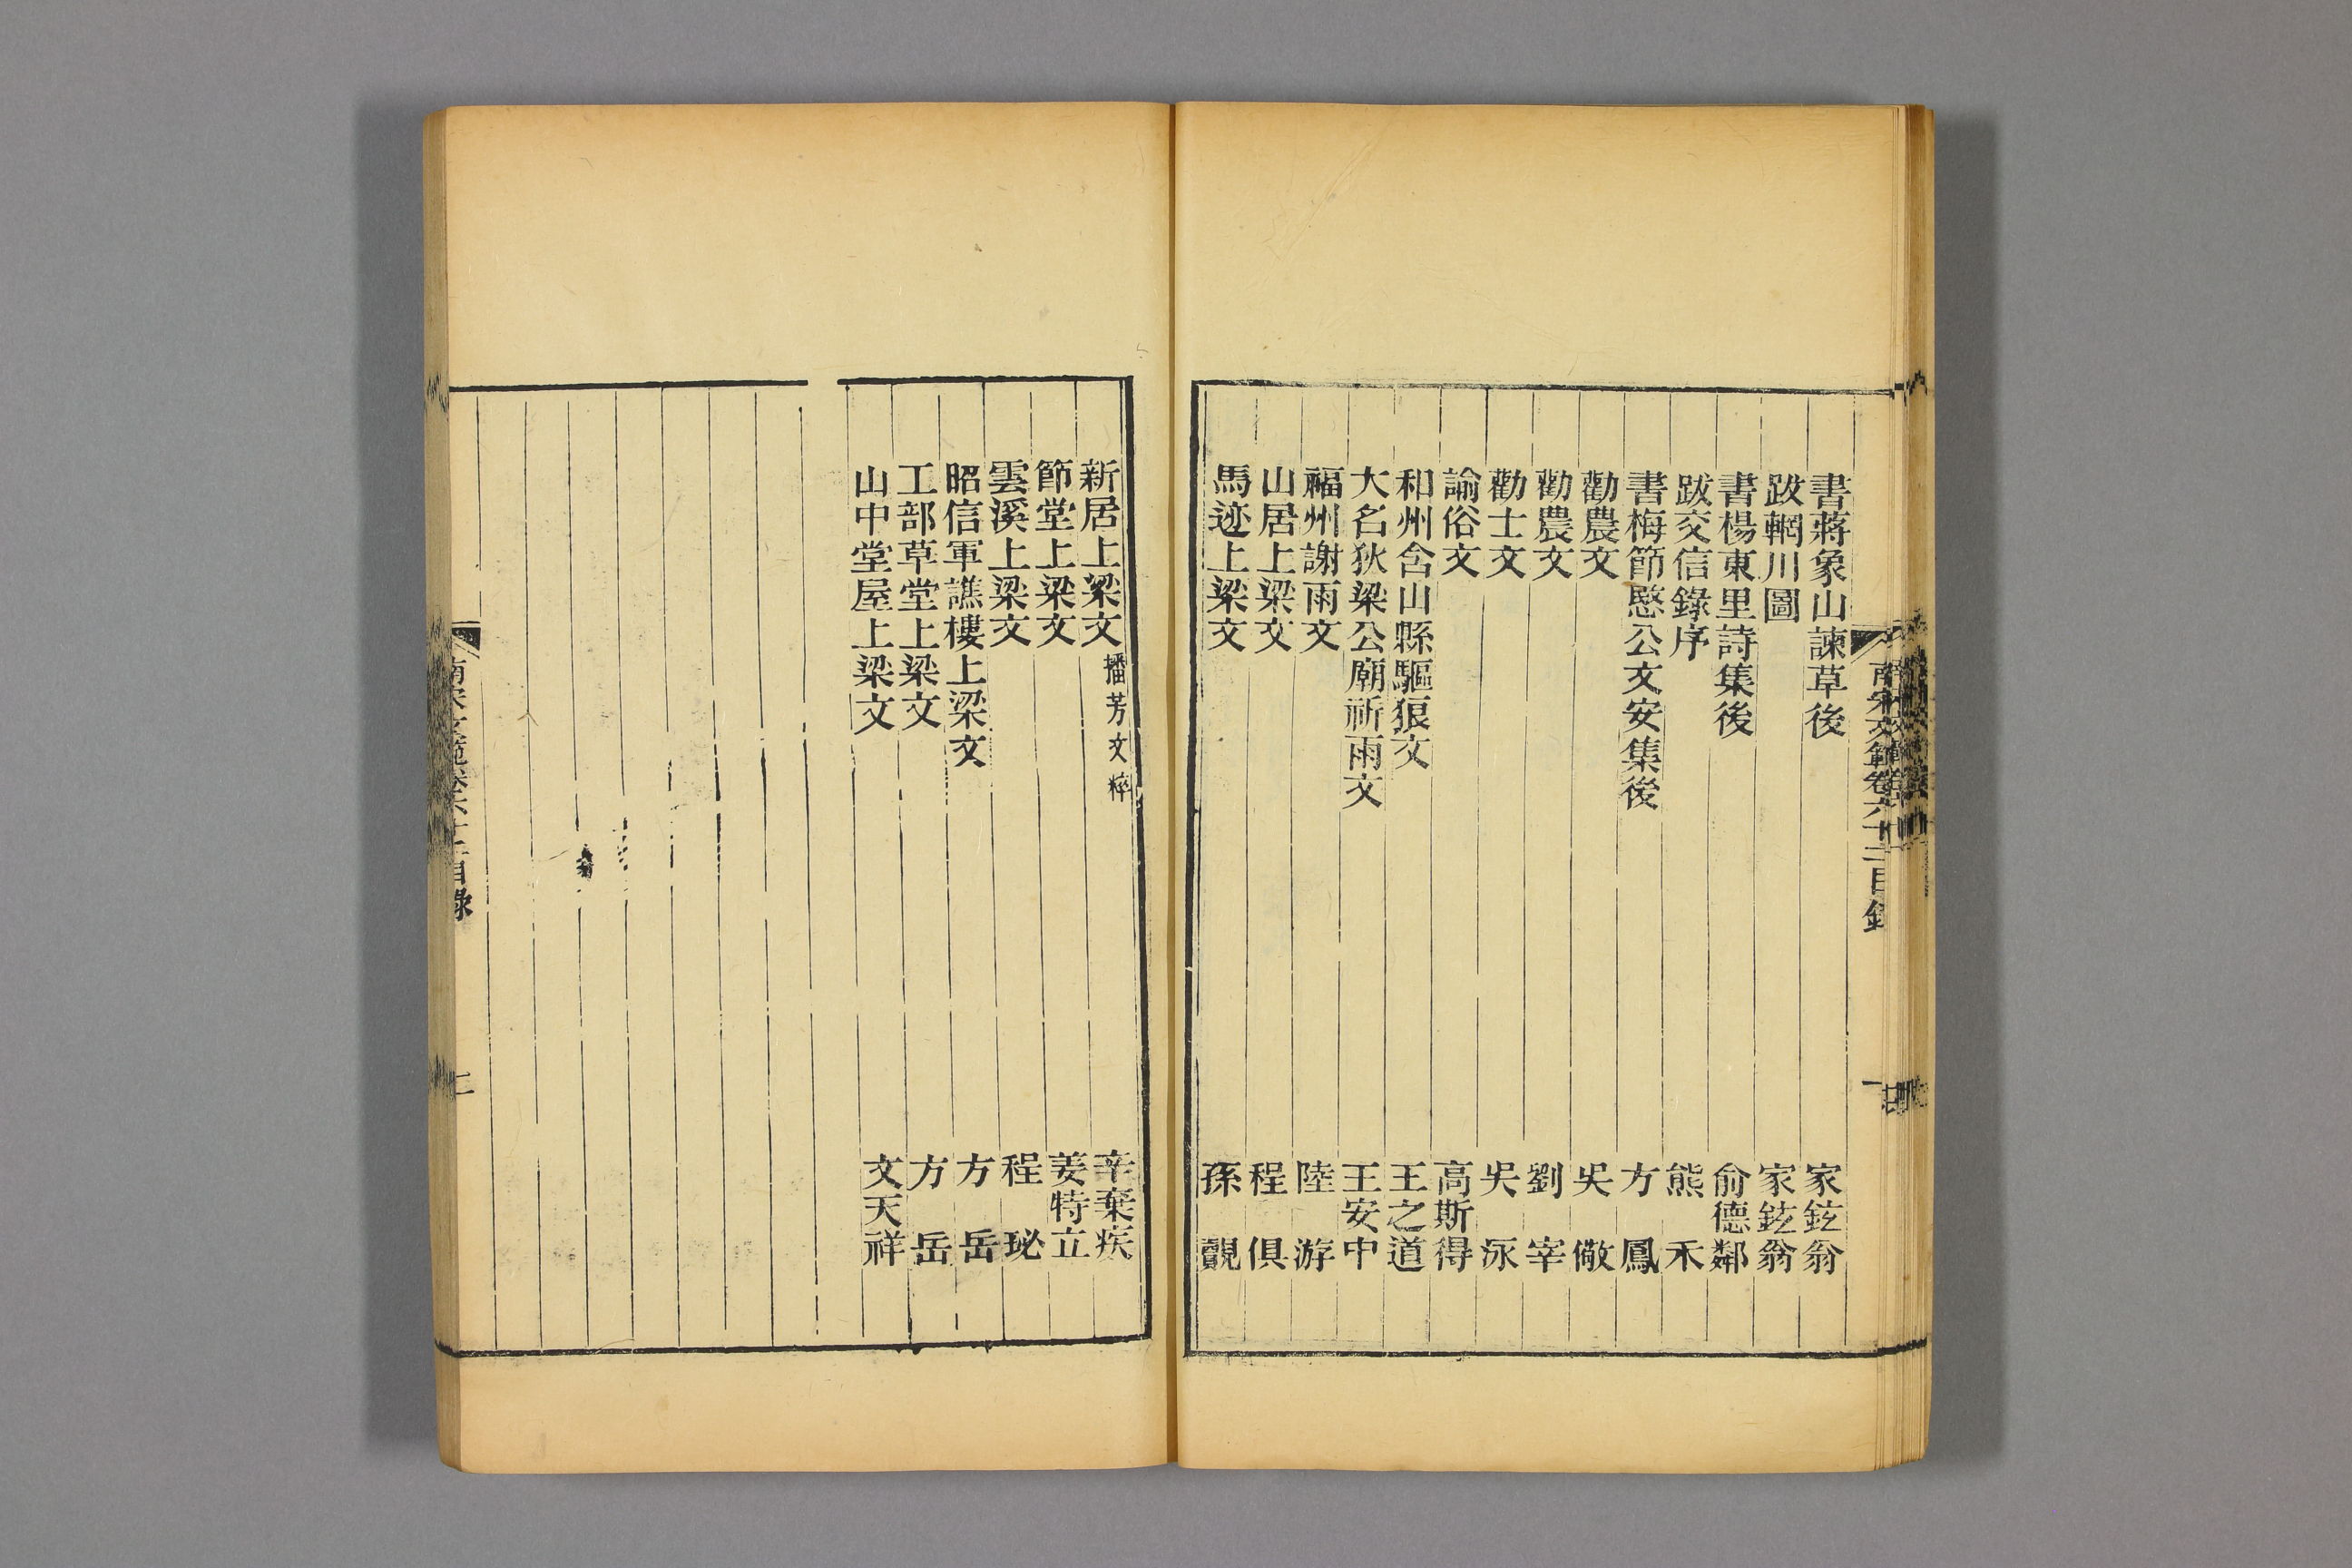 書蔣象山諫草後 家鉉翁
跋輞川圖 家鉉翁
書楊東里詩集後 俞德鄰
跋交信錄序 熊禾
書梅節愍公文安集後 方鳳
勸農文 吳儆
勸農文 劉宰
勸士文 吳泳
諭俗文 高斯得
和州含山縣驅狼文 王之道
大名狄梁公廟祈雨文 王安中
福州謝雨文 陸游
山居上梁文 程俱
馬迹上梁文 孫覿
新居上梁文 播芳文粹 辛棄疾
節堂上梁文 姜特立
雲溪上梁文 程珌
昭信軍譙樓上梁文 方岳
工部草堂上梁文 方岳
山中堂屋上梁文 文天祥
南宋文範卷六十二目錄
二